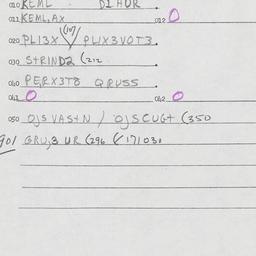 010 KEML DI HUR .
011 KEML,AX 012 O
020 PLI3X (107) PLJX3VOT3.
030 STRIND2 (212 .
040 PERX3T8 QRUSS .
041 O 042 O
050 OJS VASTN / OJSCUGT (350
901 GRU,3 UR (296 171030